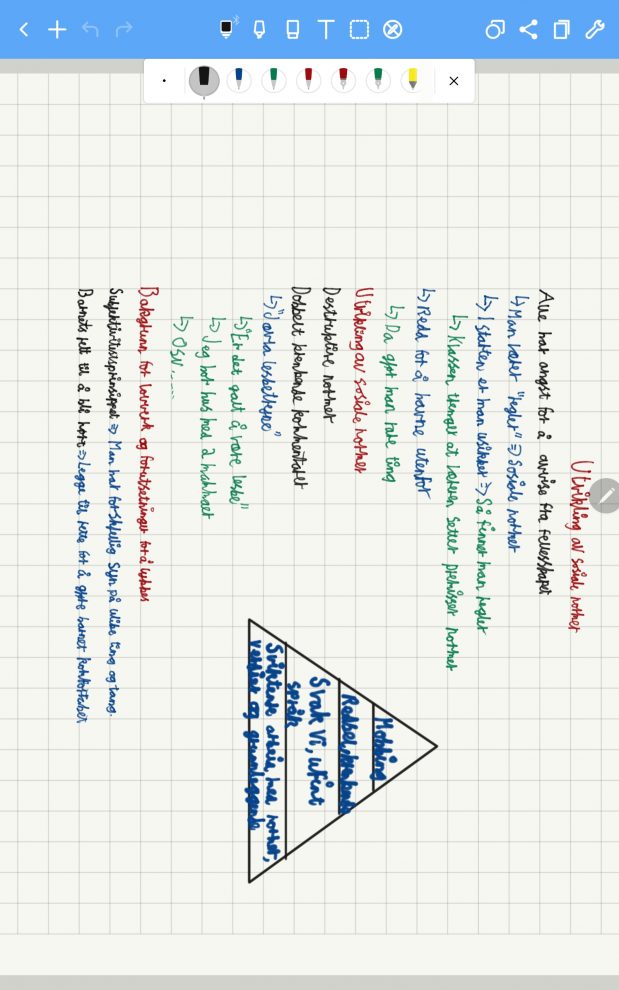 Utvikling av sosiale normer
Alle har angst for å avvise fra fellesskapet
↳ Man lærer "regler" => Sosiale normer
↳ I starten er man usikker => Så finner man regler
↳ Klassen trenger at læreren setter premisser normer
↳ Redd for å havne utenfor
↳ Da gjør man rare ting
Utvikling av sosiale normer
Destruktive normer
Dobbelt krenkende kommentarer
↳ "Jævla lesbetype"
↳ "Er det galt å være lesbe"
↳ Jeg bor hus med 2 mammaer
↳ OSV.....
Bakgrunn for lovverk og forutsetninger for å lykkes
Subjektivitetsprinsippet => Man har forskjellig syn på ulike ting og tang.
Barnets rett til å bli hørt => Legge til rette for å gjøre barnet komfortabel
Mobbing
Redsel, krenkende
Svak vi, ufint
språk
Sviktende arbeid med normer,
verdier og grunnleggende